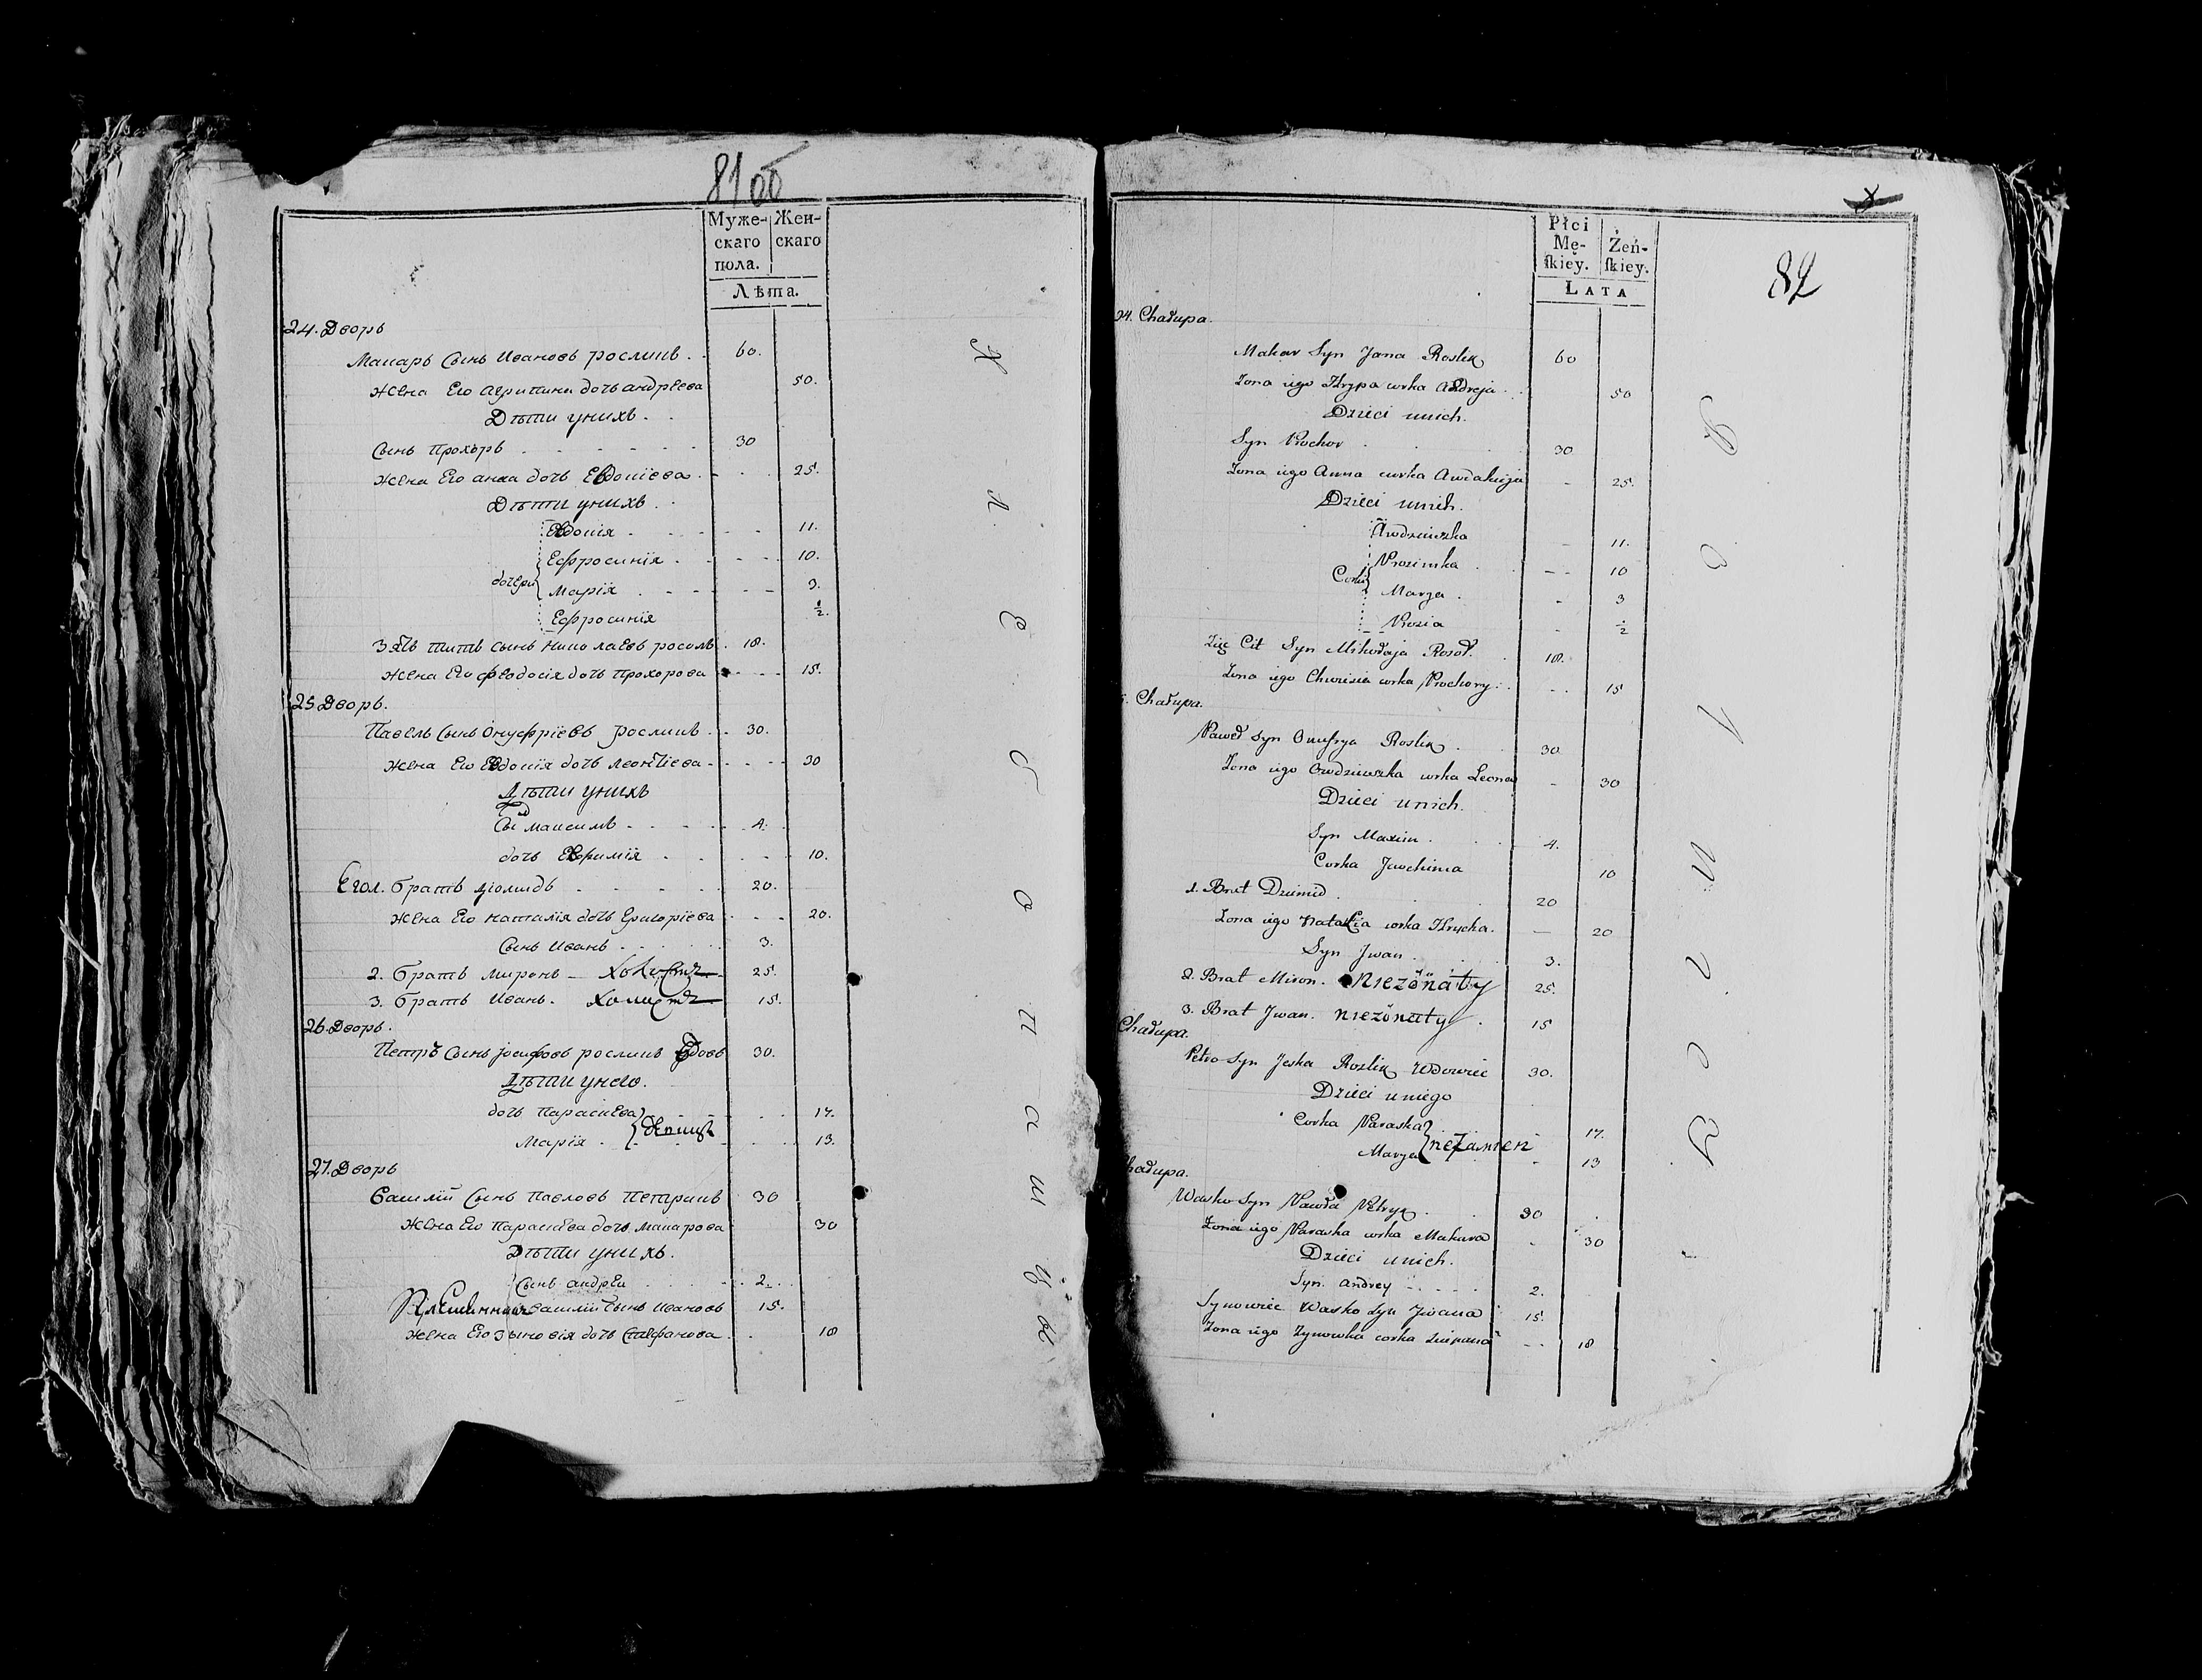 81 об
Муже-
скаго
пола.
Жен-
скаго
Лѣта.
24. Дворъ
Макаръ Сынъ Ивановъ росликъ . . 60.
жена Его агрипина дочь андрѣева 50.
Дѣти унихъ . .
Сынъ Прохъръ 30
жена Его анна дочь Евдокіева . 25.
Дѣти унихъ .
дочери
Евдокія 11.
Ефросинія 10.
Марія 3.
Ефросинія ½.
Зять титъ сынъ николаевъ росолъ . 18.
жена Его феодосія дочь Прохорова 15.
25 Дворъ.
Павелъ Сынъ Онуфріевъ росликъ . . 30.
жена Его Евдокія дочь леонтіева 30
Дѣти унихъ
Сы максимъ 4.
дочь Евфимія 10.
Его 1. братъ діомидъ 20.
жена Его наталія дочь григоріева 20.
Сынъ Иванъ 3.
2. братъ миронъ 25.
3. братъ Иванъ. 15.
26. Дворъ.
Петръ Сынъ Іосифовъ росликъ вдовъ 30.
Дѣти унего.
дочь параскева 17.
Марія . 13.
27. Дворъ
василій Сынъ павловъ петрикъ 30
жена Его параскева дочь макарова 30
Дѣти унихъ.
Сынъ андрей 2.
Племянникъ василій Сынъ Ивановъ 15.
жена Его зыновія дочь Стефанова . 18
Хлебопашцы
Płci
Mę-
ſkiey.
Żeń-
ſkiey.
LATA
82
24. Chałupa.
Makar Syn Jana Roslik 60
Zona iego Hrypa corka Andreja 50
Dzieci unich.
Syn Prochor 30
Zona iego Anna corka Awdakieja 25.
Dzieci unich.
Corki
Awdziuszka 11.
Prosimka 10
Marya . 3
Prosia ½
Zięc Cit Syn Mikołaja Rosoł. 18.
Zona iego Chwiesia corka Prochory. 15
Chałupa.
Paweł Syn Onufrya Roslik . 30
Zona iego Owdziuszka corka Leona 30
Dzieci unich.
Syn Maxim . 4.
Corka Jwochima 10
1. Brat Dziemid . 20
Zona iego Natalia corka Hrycka. 20
Syn Jwan . 3.
2. Brat Miron. Niezonaty 25.
3. Brat Jwan. niezonaty . 15
Chałupa.
Petro Syn Jeska Roslik Wdowiec 30.
Dzieci uniego
Corka Paraska 17.
Marya nezamen 13
Chałupa.
Wasko Syn Pawła Petryk . 30
Zona iego Paraska corka Makara 30
Dzieci unich.
Syn. Andrey 2.
Synowiec Wasko Syn Jwana 15.
Zona iego Zynowka corka 18
Rolnicy